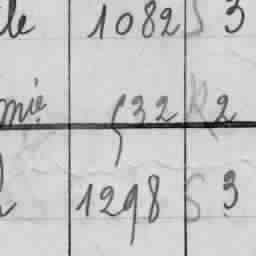 le 1082 S 3
mie 532 R 2
1298 S 3